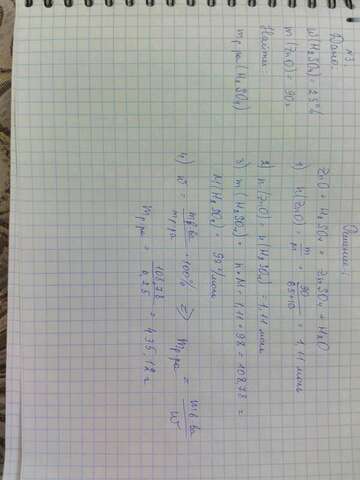 N3.
Дано:
w(H₂SO₄) = 25%
m(ZnO) = 90г
Найти:
m р-ра (H₂SO₄)
Решение:
ZnO + H₂SO₄ = ZnSO₄ + H₂O
1) n(ZnO) = m/M = 90/65+16 = 1,11 моль
2) n(ZnO) = n(H₂SO₄) = 1,11 моль
3) m(H₂SO₄) = n * M = 1,11 * 98 = 108,78 г
M(H₂SO₄) = 98 г/моль
4) w = m в-ва/m р-ра · 100% => m р-ра = m в-ва/w
m р-ра = 108,78/0,25 = 435,12 г